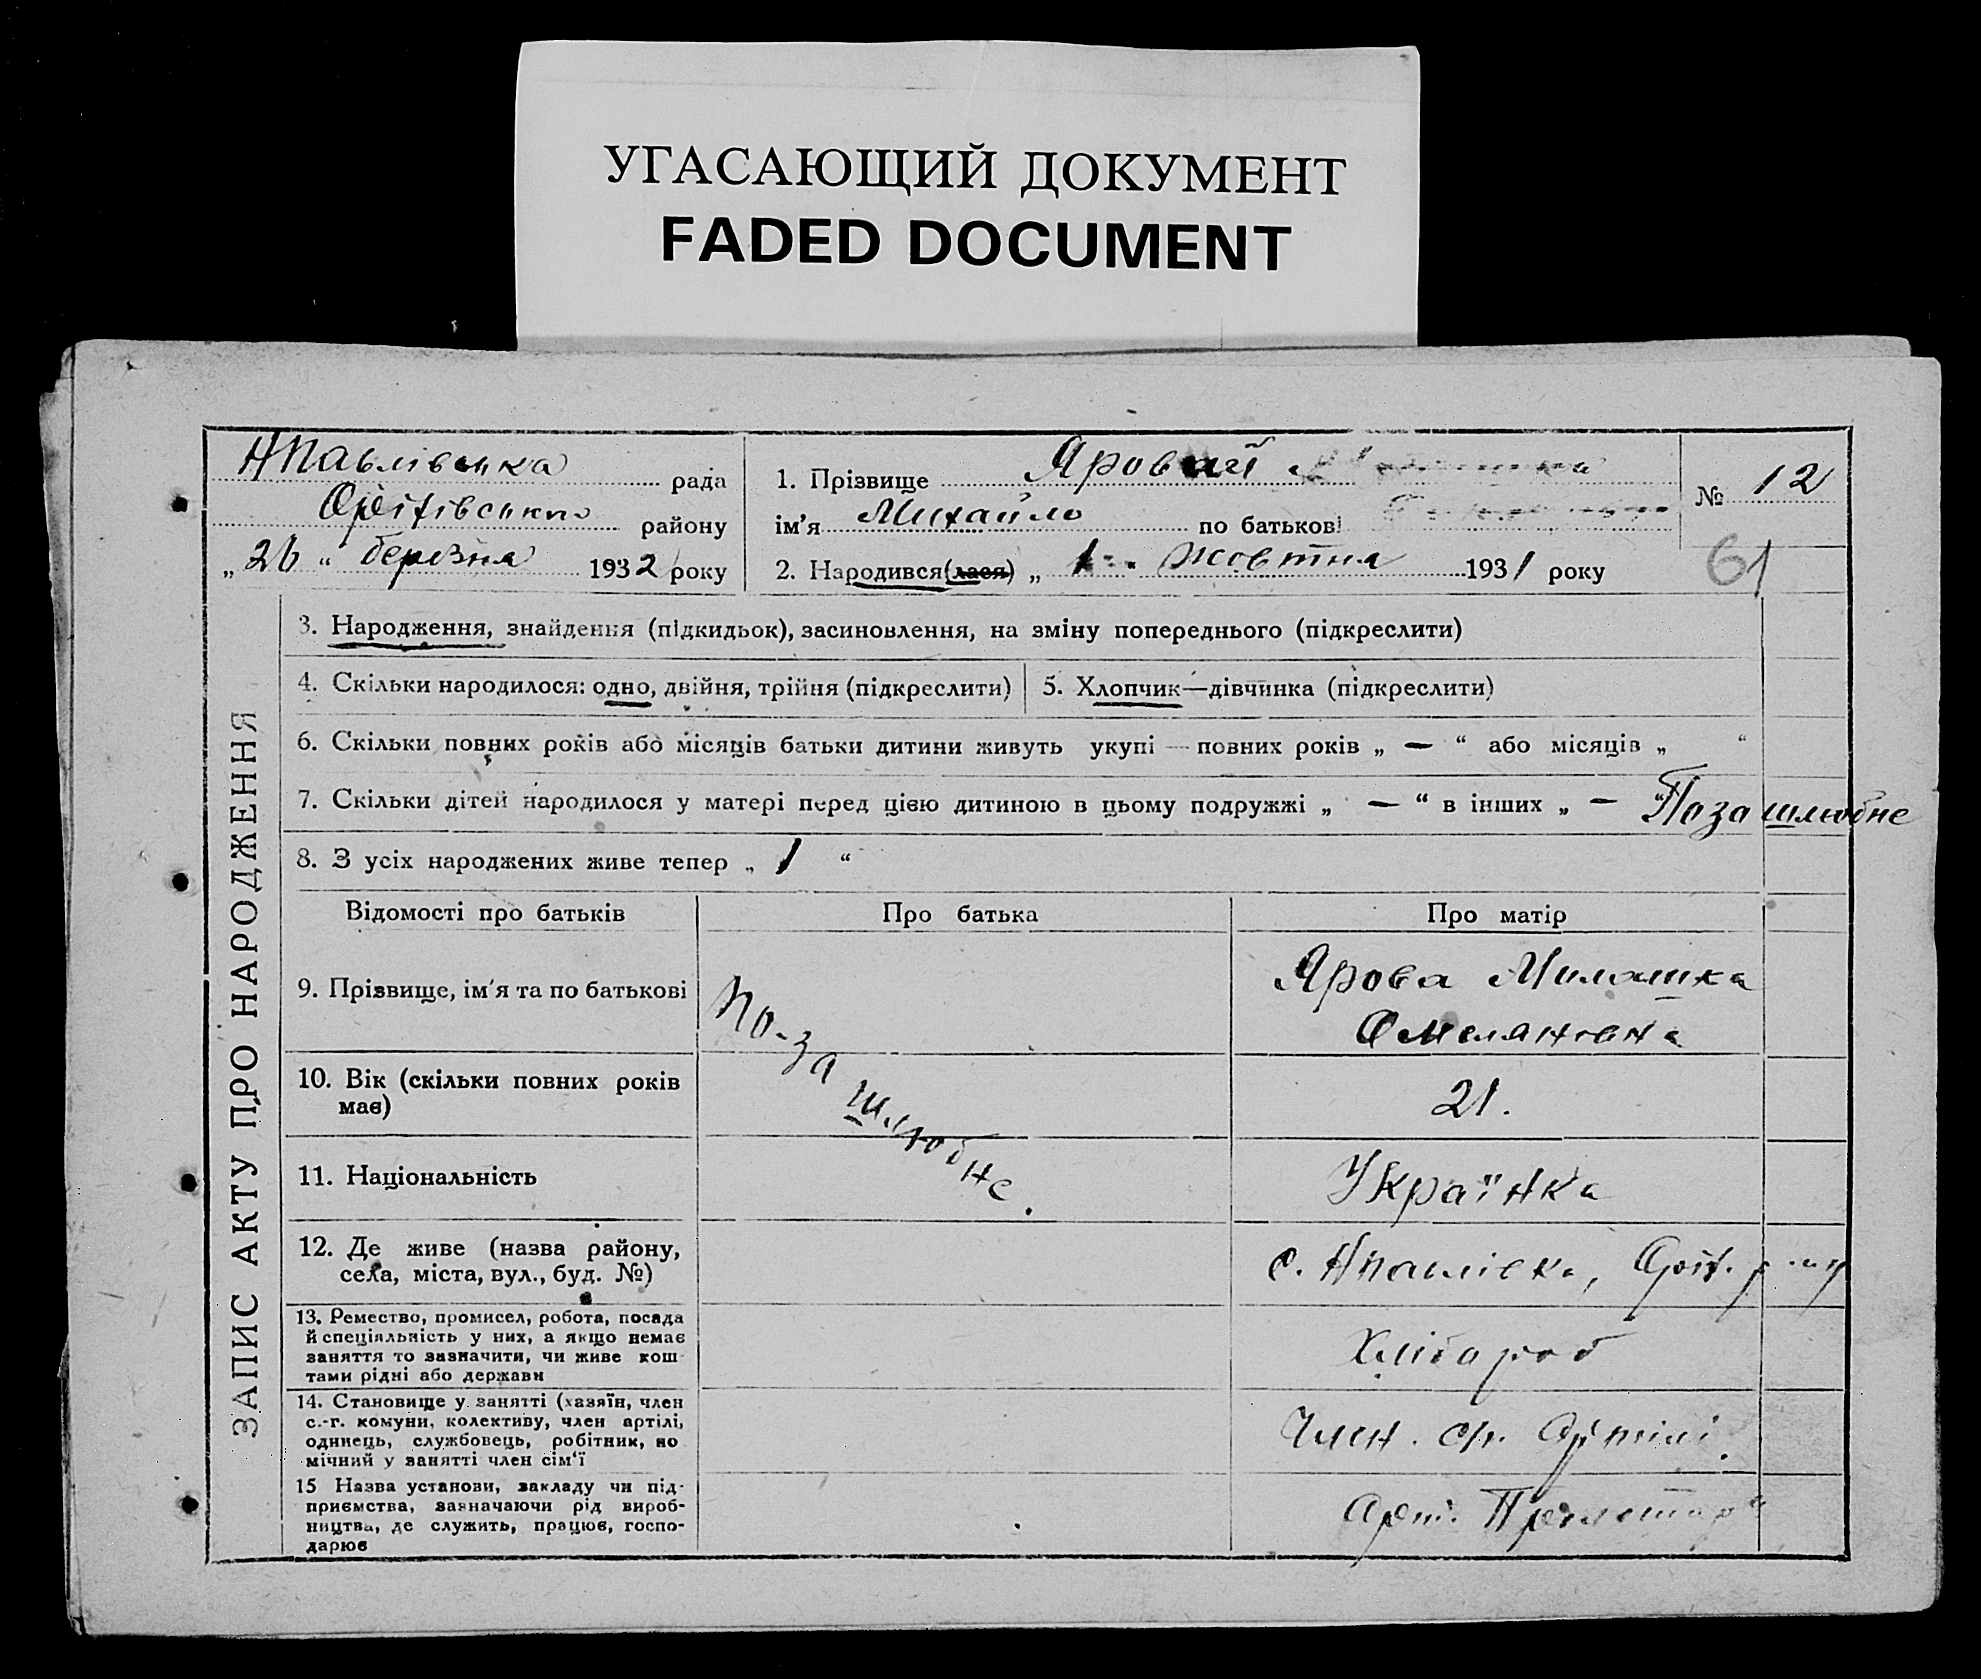 УГАСАЮЩИЙ ДОКУМЕНТ
FADED DOCUMENT
НПавлівська рада
Оріхівського району
„ 26 “ березня 1932 року
1. Прізвище Яровий
ім’я Михайло по батькові
2. Народився(лася) „ 1 “ жовтня 1931 року
№ 12
61
ЗАПИС АКТУ ПРО НАРОДЖЕННЯ
3. Народження, знайдення (підкидьок), засиновлення, на зміну попереднього (підкреслити)
4. Скільки народилося: одно, двійня, трійня (підкреслити)
5. Хлопчик—дівчинка (підкреслити)
6. Скільки повних років або місяців батьки дитини живуть укупі — повних років „ — “ або місяців „ “
7. Скільки дітей народилося у матері перед цією дитиною в цьому подружжі „ — “ в інших „ — “ Поза шлюбне
8. З усіх народжених живе тепер „ 1 “
Відомості про батьків
Про батька
Про матір
9. Прізвище, ім’я та по батькові
По-за шлюбне.
Ярова Милашка
Омеляновна
10. Вік (скільки повних років
має)
21.
11. Національність
Українка
12. Де живе (назва району,
села, міста, вул., буд. №)
с. НПавлівка, Оріх. р-ну
13. Ремество, промисел, робота, посада
й спеціяльність у них, а якщо немає
заняття то зазначити, чи живе кош-
тами рідні або держави
Хлібороб
14. Становище у занятті (хазяїн, член
с.-г. комуни, колективу, член артілі,
одинець, службовець, робітник, по
мічний у занятті член сім‘ї
Член. с/г. Артілі.
15 Назва установи, закладу чи під-
приємства, зазначаючи рід вироб-
ництва, де служить, працює, госпо-
дарює
Арт.